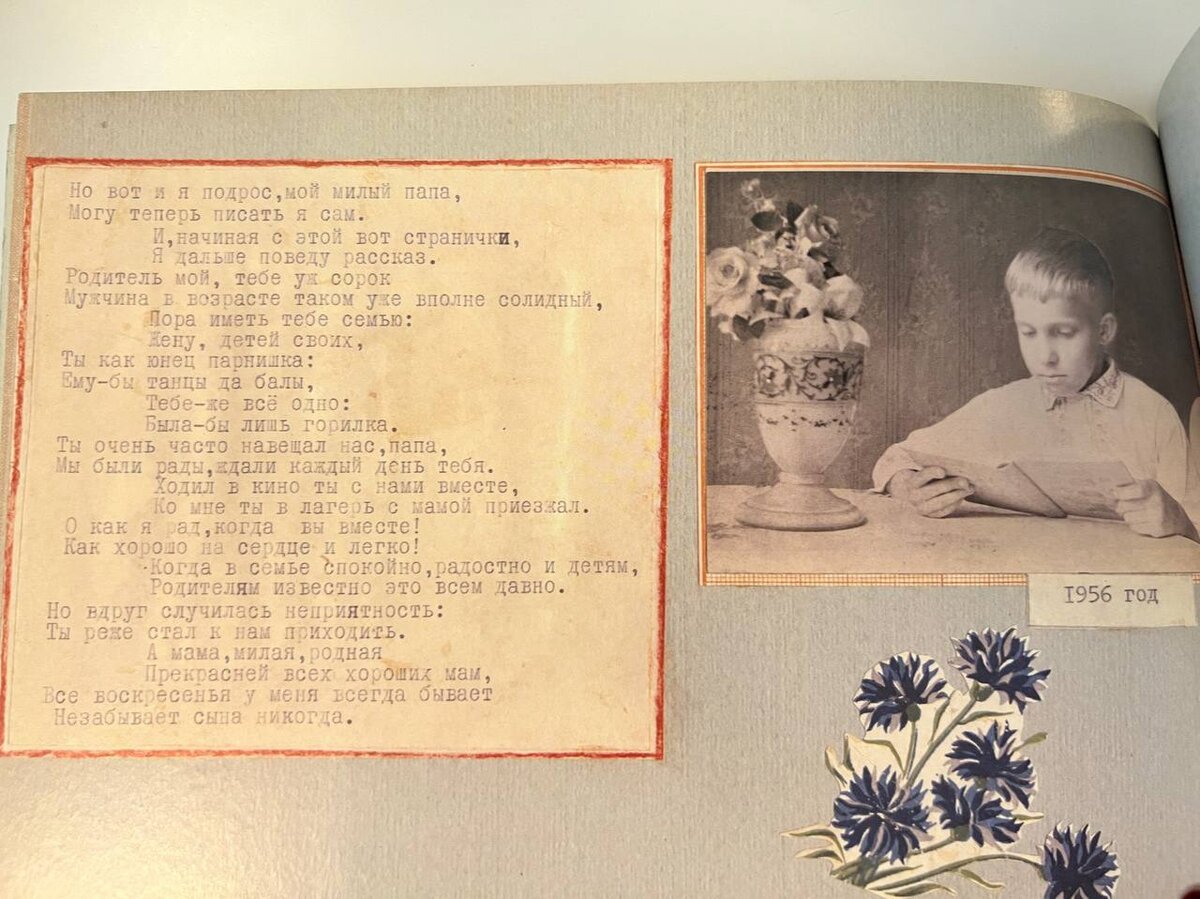 Но вот и я подрос,мой милый папа,
Могу теперь писать я сам.
И,начиная с этой вот странички,
Я дальше поведу рассказ.
Родитель мой, тебе уж сорок
Мужчина в возрасте таком уже вполне солидный,
Пора иметь тебе семью:
Жену, детей своих,
Ты как юнец парнишка:
Ему-бы танцы да балы,
Тебе-же всё одно:
Была-бы лишь горилка.
Ты очень часто навещал нас,папа,
Мы были рады,ждали каждый день тебя.
Ходил в кино ты с нами вместе,
Ко мне ты в лагерь с мамой приезжал.
О как я рад,когда вы вместе!
Как хорошо на сердце и легко!
Когда в семье спокойно,радостно и детям,
Родителям известно это всем давно.
Но вдруг случилась неприятность:
Ты реже стал к нам приходить.
А мама,милая,родная
Прекрасней всех хороших мам,
Все воскресенья у меня всегда бывает
Незабывает сына никогда.
1956 год